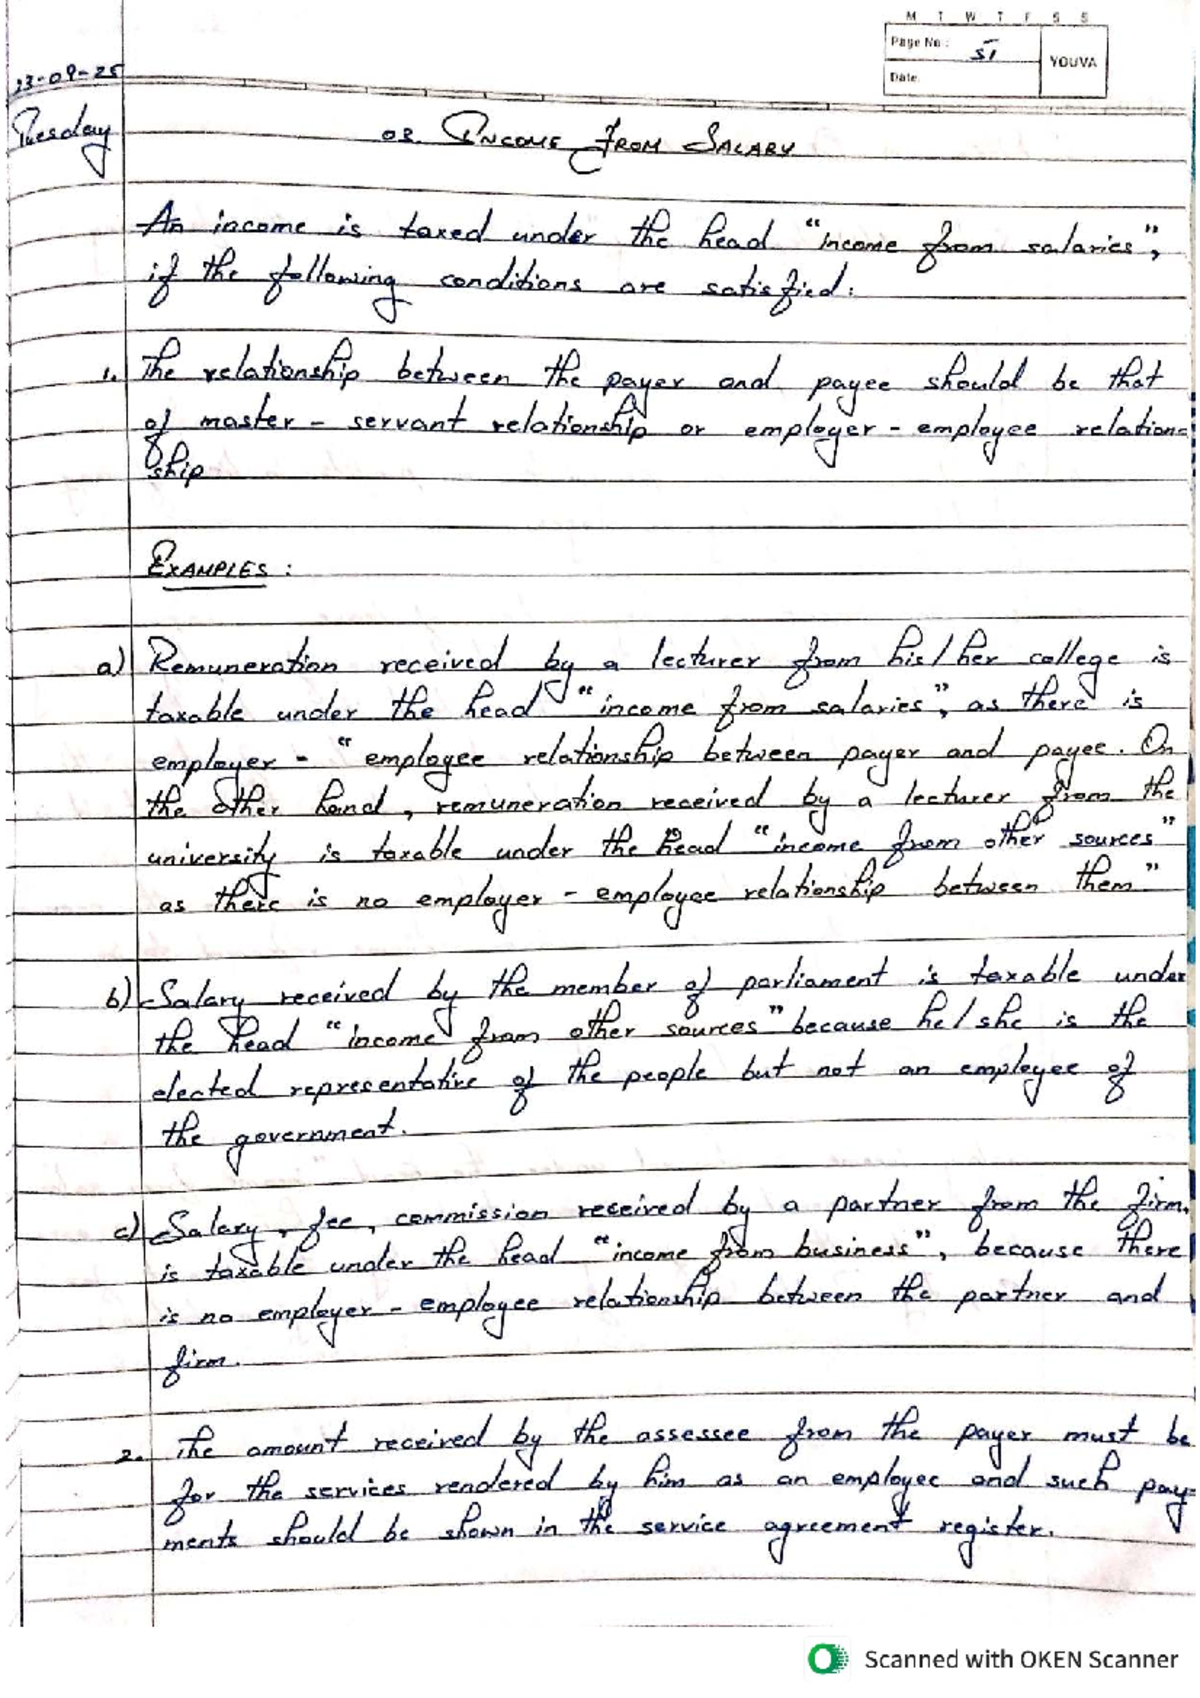 M T W T F S S
Page No.: 51
YOUVA
Date:
23-09-25
Tuesday
03. INCOME FROM SALARY
An income is taxed under the head "income from salaries",
if the following conditions are satisfied:
1. The relationship between the payer and payee should be that
of master - servant relationship or employer - employee relation-
ship
EXAMPLES :
a) Remuneration received by a lecturer from his/her college is
taxable under the head "income from salaries", as there is
employer - "employee relationship between payer and payee. On
the other hand, remuneration received by a lecturer from the
university is taxable under the head "income from other sources"
as there is no employer - employee relationship between them"
b) Salary received by the member of parliament is taxable under
the head "income from other sources" because he/she is the
elected representative of the people but not an employee of
the government.
c) Salary, fee, commission received by a partner from the firm,
is taxable under the head "income from business", because there
is no employer - employee relationship between the partner and
firm.
2. The amount received by the assessee from the payer must be
for the services rendered by him as an employee and such pay-
ments should be shown in the service agreement register.
Scanned with OKEN Scanner